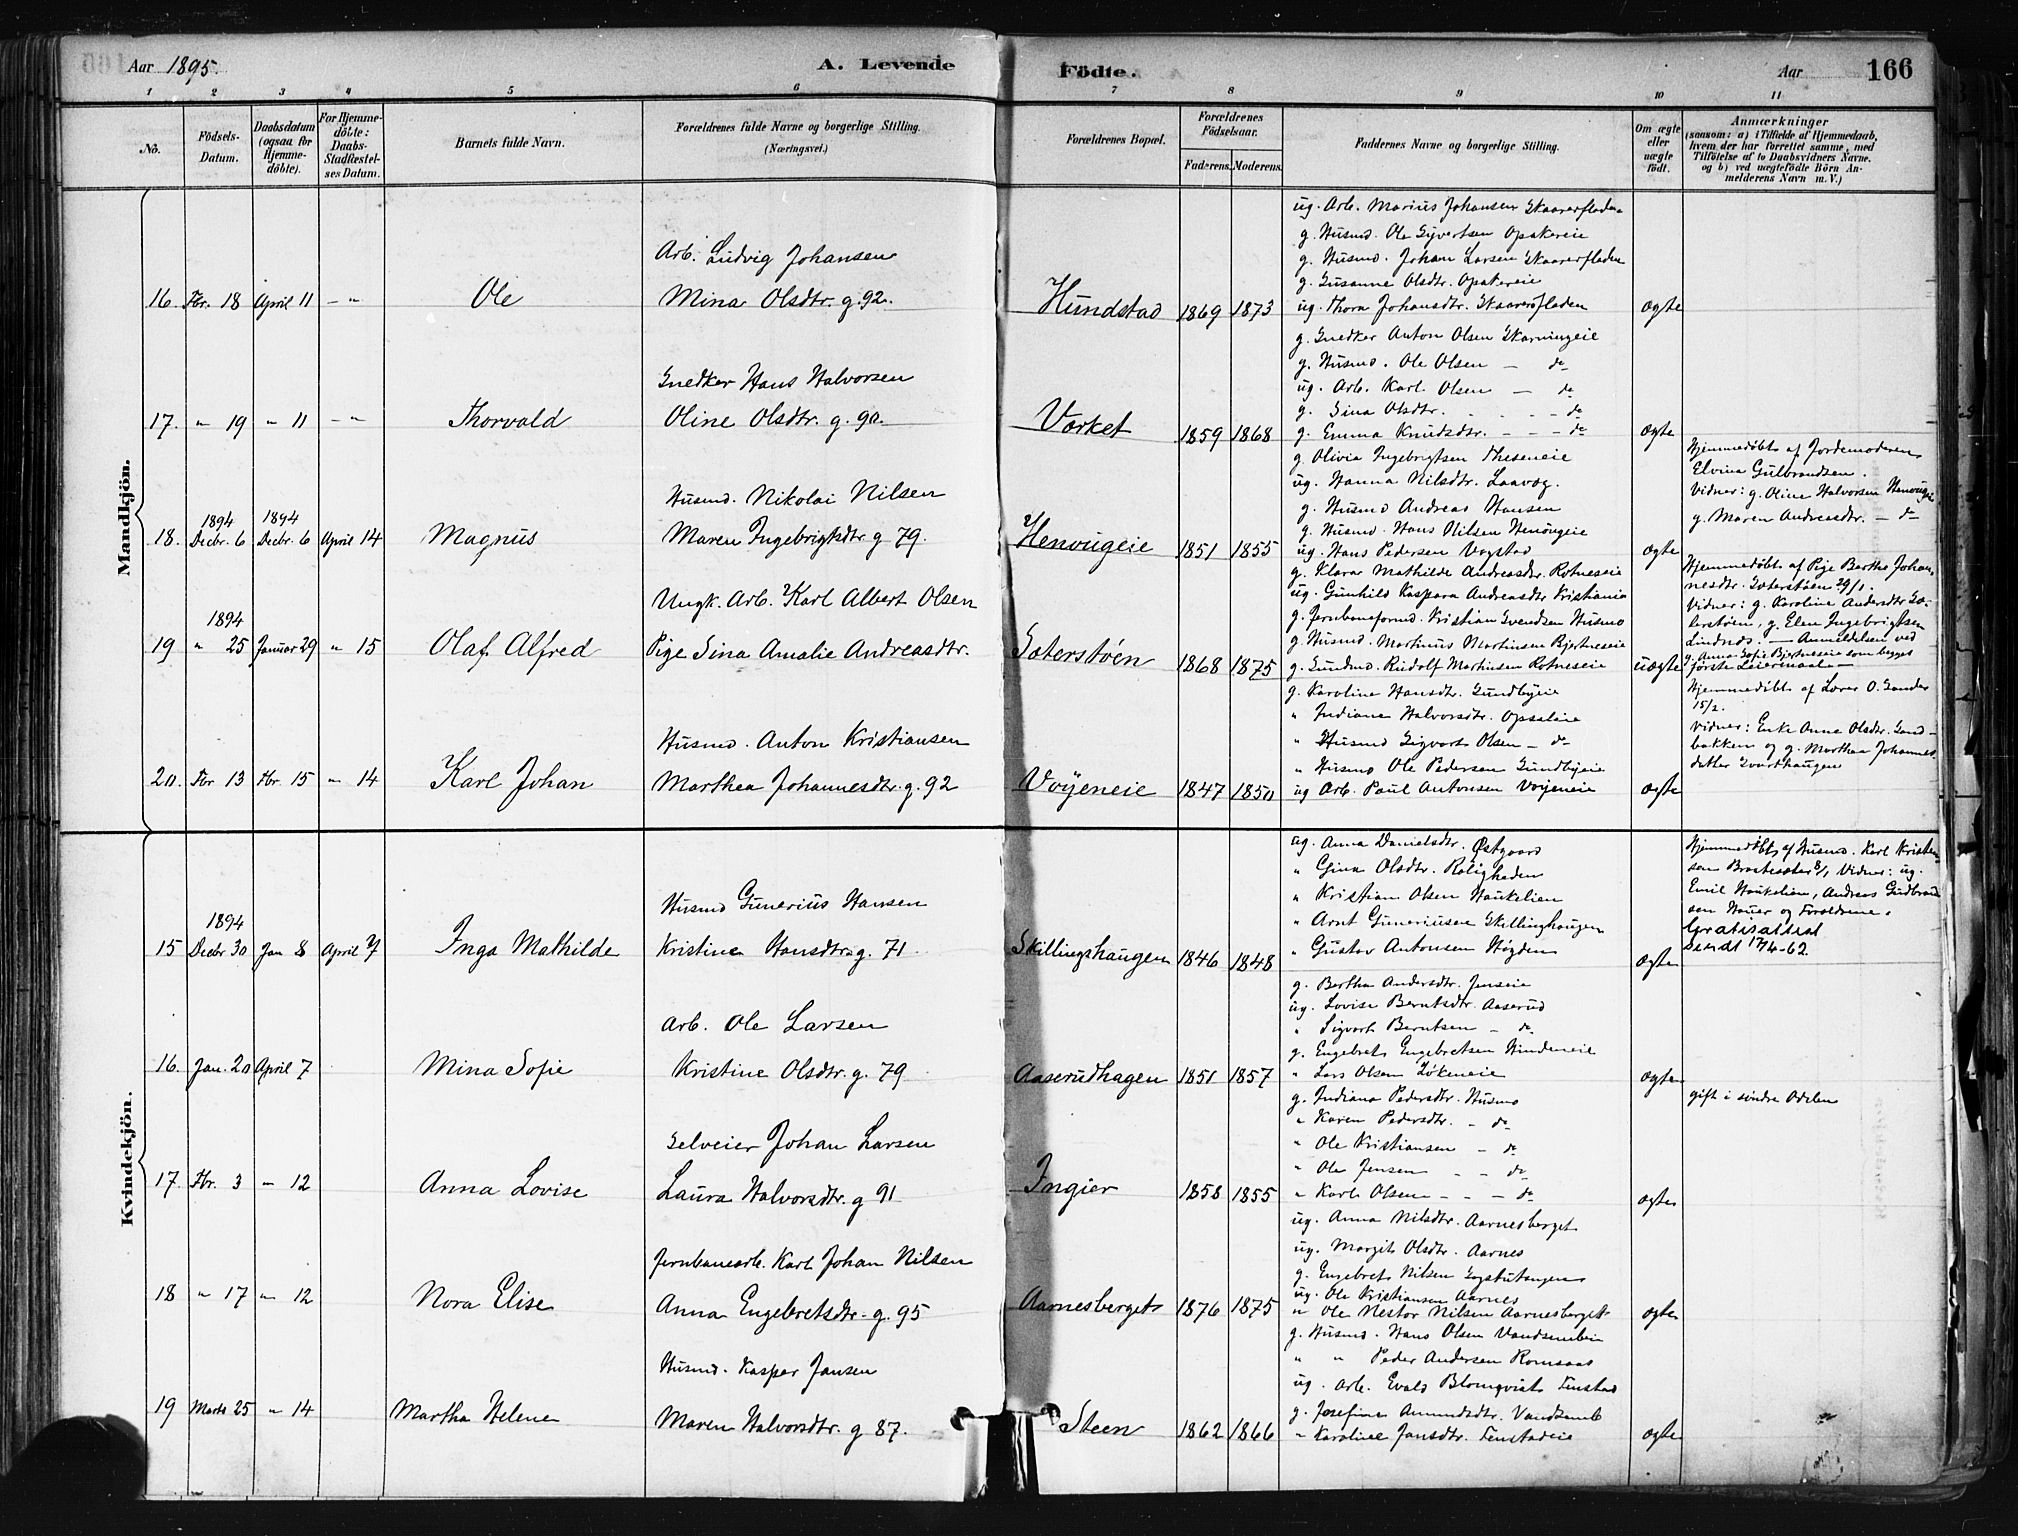 Aar 1895. A. Levende Födte. Aar 166
1 2 3 4 5 6 7 8 9 10 11
No.
Födsels-Datum.
Daabsdatum (ogsaa for Hjemme-döbte).
For Hjemme-döbte: Daabs-Stadfæstel-ses Datum.
Barnets fulde Navn.
Forældrenes fulde Navne og borgerlige Stilling.
(Næringsvei.)
Forældrenes Bopæl.
Forældrenes Födselsaar.
Faderens. Moderens.
Faddernes Navne og borgerlige Stilling.
Om ægte eller uægte födt.
Anmærkninger
(saasom: a) i Tilfælde af Hjemmedaab,
hvem der har forrettet samme, med
Tilföielse af to Daabsvidners Navne.
og b) ved uægtefödte Börn An-
melderens Navn m. V.)
Mandkjön.
ug. Arb. Marius Johansen Skaarerfladen
g. Husmd. Ole Syvertsen Opakereie
Arb. Ludvig Johansen
g. Husmd. Johan Larsen Skaarerfladen
g. Susanne Olsdtr. Opakereie
16. Fbr. 18 April 11 - " Ole Mina Olsdtr. g. 92. Hundstad 1869 1873 ug. Thora Johansdtr. Skaarerfladen ægte
g. Snedker Anton Olsen Skarningeie
g. Husmd. Ole Olsen - do
Snedker Hans Halvorsen
ug. Arb. Karl Olsen - do
g. Sina Olsdtr. - - - do
17. " 19 " 11 - " Thorvald Oline Olsdtr. g. 90. Værket 1859 1868 g. Emma Knudsdtr. - - - do ægte
g. Olivia Ingebrigtsen Theseneie
Hjemmedøbt af Jordemoderen
ug. Hanna Nilsdtr. Laavæg.
Elvina Gulbrandsen.
Husmd. Nikolai Nilsen
Vidner: g. Oline Halvorsen Henougeie
g. Husmd Andreas Hansen
g. Maren Andreasdtr. - do
1894 1894
g. Husmd. Hans Nilsen Henougeie
18. Decbr. 6 Decbr. 6 April 14 Magnus Maren Ingebrigtsdtr. g 79. Henougeie 1851 1855 ug. Hans Pedersen Vogstad ægte
g. Klara Mathilde Andreasdtr. Rotneseie
Hjemmedøbt af Pige Berthe Johan-
nesdtr. Sæterstøen 29/1.
Ungk. Arb. Karl Albert Olsen
ug. Gunhild Kaspara Andreasdtr Kristiania
Vidner: g. Karoline Andersdtr Sæ-
terstøen, g. Elen Ingebrigtsen
1894
g. Jernbaneformd. Kristian Svendsen Husmo
g. Husmd. Martinus Martinsen Bjertneseie
Lindnes. - Anmeldelsen ved
g. Anna Sofie Bjertneseie som begges
19 " 25 Januar 29 " 15 Olaf Alfred Pige Sina Amalie Andreasdtr. Sæterstøen 1868 1875 g. Sundmd. Rudolf Martinsen Rotneseie uægte første Leiermaal -
g. Karoline Hansdtr. Sundbyeie
Hjemmedøbt af Lærer O. Sander
15/2.
" Indiane Halvorsdtr. Opsaleie
Husmd. Anton Kristiansen
Vidner: Enke Anne Olsdtr. Sand-
" Husmd Sigvart Olsen - do
bakken og g. Marthea Johannes-
" Husmd Ole Pedersen Sundbyeie
datter Svardhaugen
20. Fbr 13 Fbr. 15 " 14 Karl Johan Marthea Johannesdtr. g. 92 Vøyeneie 1847 1850 ug Arb. Paul Antonsen Vøyeneie ægte
Kvindekjön.
ug. Anna Danielsdtr. Østgaard
Hjemmedøbt af Husmd. Karl Kristen-
" Gina Olsdtr. Roligheden
sen Braatesæter 8/1, Vidner: ug.
Husmd Gunerius Hansen
" Kristian Olsen Haukelien
Emil Haukelien, Andreas Gudbrand-
sen Hauer og Forældrene.
1894
" Arnt Gunneriusen Skillinghaugen
Gratisattest
15 Decbr 30 Jan 8 April 7 Inga Mathilde Kristine Hansdtr. g. 71 Skillingshaugen 1846 1848 " Gustav Antonsen Høgden ægte
Sendt 17/4-62.
g. Berthe Andersdtr. Jenseie
ug. Lovise Berntsdtr. Aaserud
Arb. Ole Larsen
" Sigvart Berntsen - do
g. Engebret Engebretsen Hindeneie
16. Jan. 20 April 7 Mina Sofie Kristine Olsdtr. g. 79 Aaserudhagen 1851 1857 " Lars Olsen Løkeneie ægte
g. Indiana Pedersdtr. Husmo
gift i søndre Odalen
" Karen Pedersdtr. - do
Selveier Johan Larsen
" Ole Kristiansen - do
" Ole Jensen - - do
17. Fbr. 3 " 12 Anna Lovise Laura Halvorsdtr. g 91 Ingier 1858 1855 " Karl Olsen - - - do ægte
ug. Anna Nilsdtr. Aarnesberget
ug. Margit Olsdtr. Aarnes
Jernbanearb. Karl Johan Nilsen
g. Engebret Nilsen
ug. Ole Kristiansen Aarnes
18 " 17 " 12 Nora Elise Anna Engebretsdtr. g. 95 Aarnesberget 1876 1875 " Ole Nestor Nilsen Aarnesberget ægte
g. Husmd. Hans Olsen Vandsembeie
Husmd. Kasper Jansen
" " Peder Andersen Romsaas
ug. Arb. Evald Blomqvist Fenstad
g. Josefine Amundsdtr. Vandsemb
19 Marts 25 " 14 Martha Helene Maren Halvorsdtr. g 87. Steen 1862 1866 " Karoline Jansdtr. Fenstadeie ægte